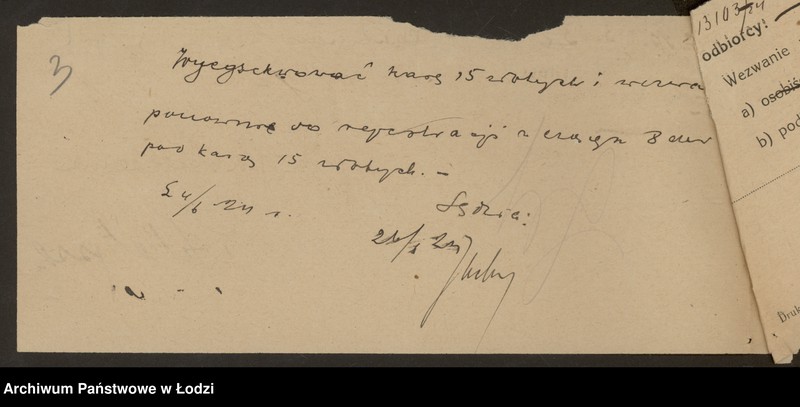 3
Wyegzekwować karę 15 złotych i wezwa
ponownie do rejestracji w ciągu 8 dni
pod karą 15 złotych. –
Sędzia:
13103/24
odbiorcy!
Wezwanie
a) osobiś
b) pod
Druk
Archiwum Państwowe w Łodzi